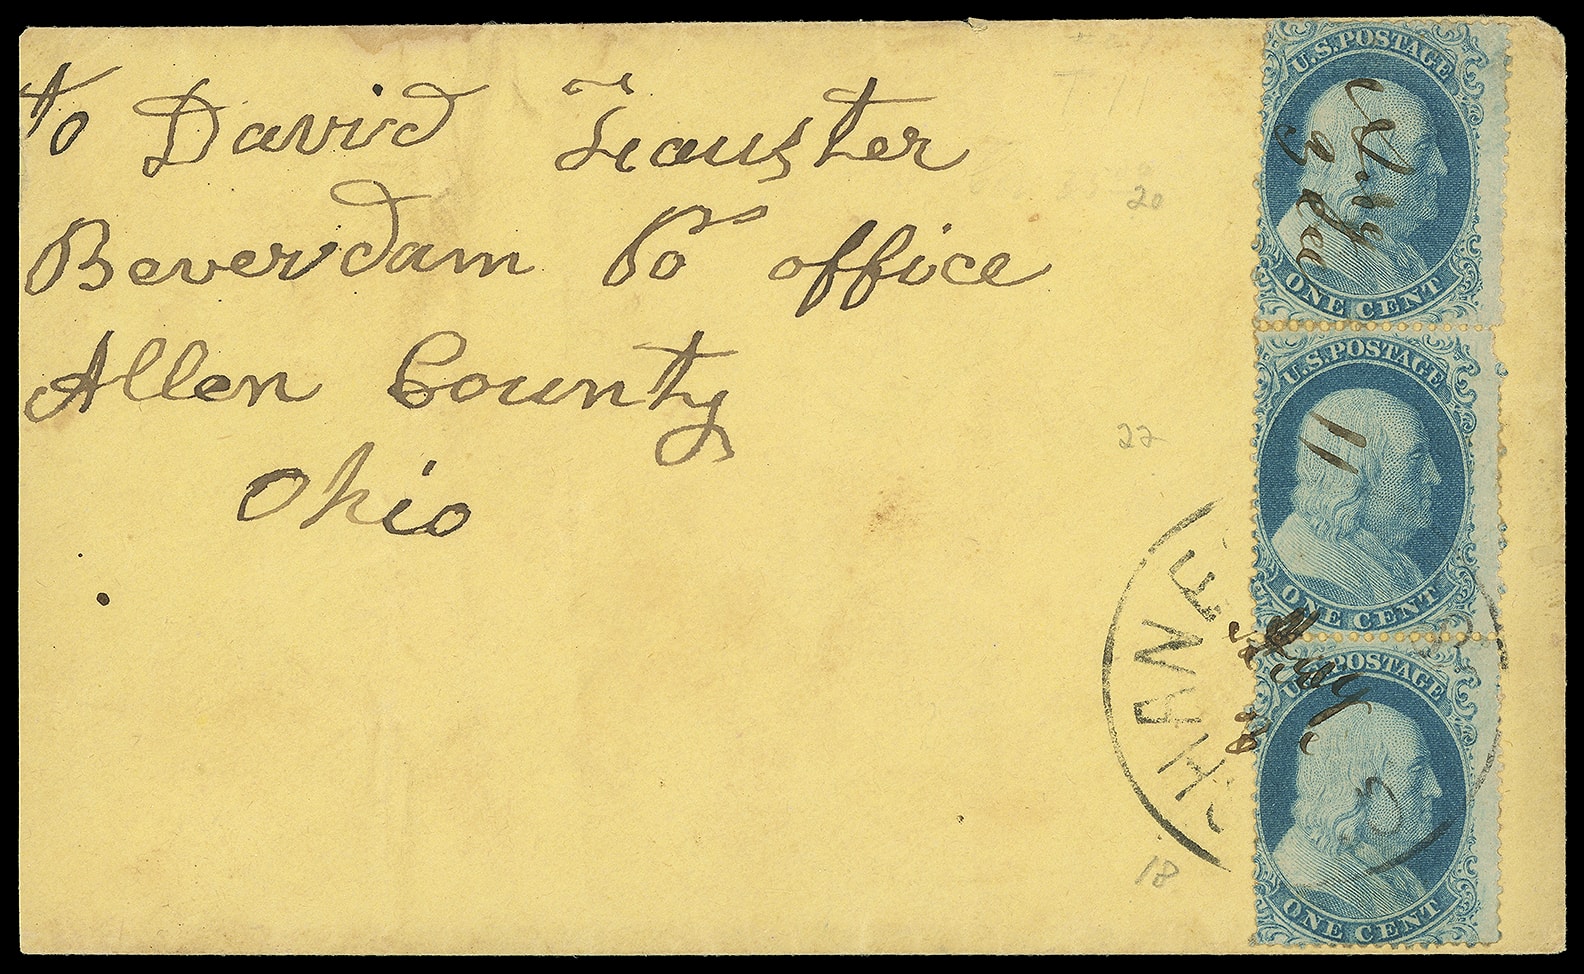 to David
Beverdam Po office
Allen County
Ohio
U.S. POSTAGE
ONE CENT
U.S. POSTAGE
11
ONE CENT
U.S. POSTAGE
ONE CENT
20
22
18